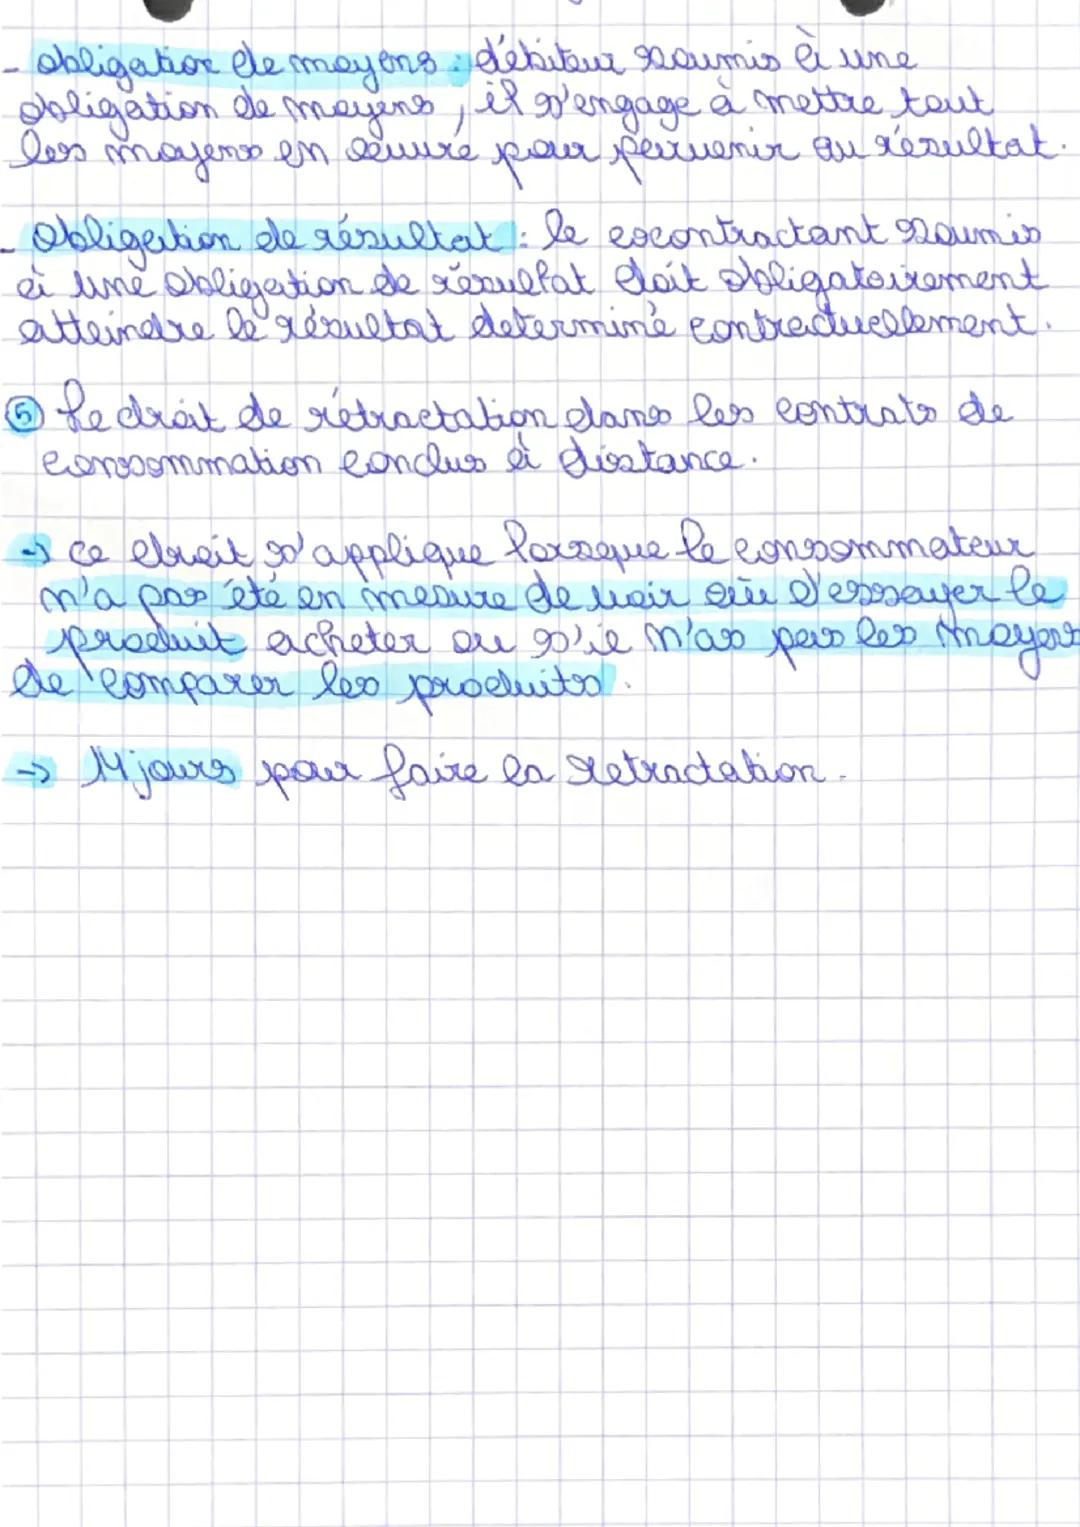 - obligation de moyens : débiteur soumis à une
obligation de moyens, il s'engage à mettre tout
les moyens en oeuvre pour parvenir au résultat.
- Obligation de résultat : le cocontractant soumis
à une obligation de résultat doit obligatoirement
atteindre le résultat determiné contractuellement.
⑤ Le droit de rétractation dans les contrats de
consommation conclus à distance.
→ ce droit s'applique lorsque le consommateur
n'a pas été en mesure de voir ou d'essayer le
produit acheter ou s'il n'as pas les moyens
de comparer les produits.
→ 14 jours pour faire la retractation.